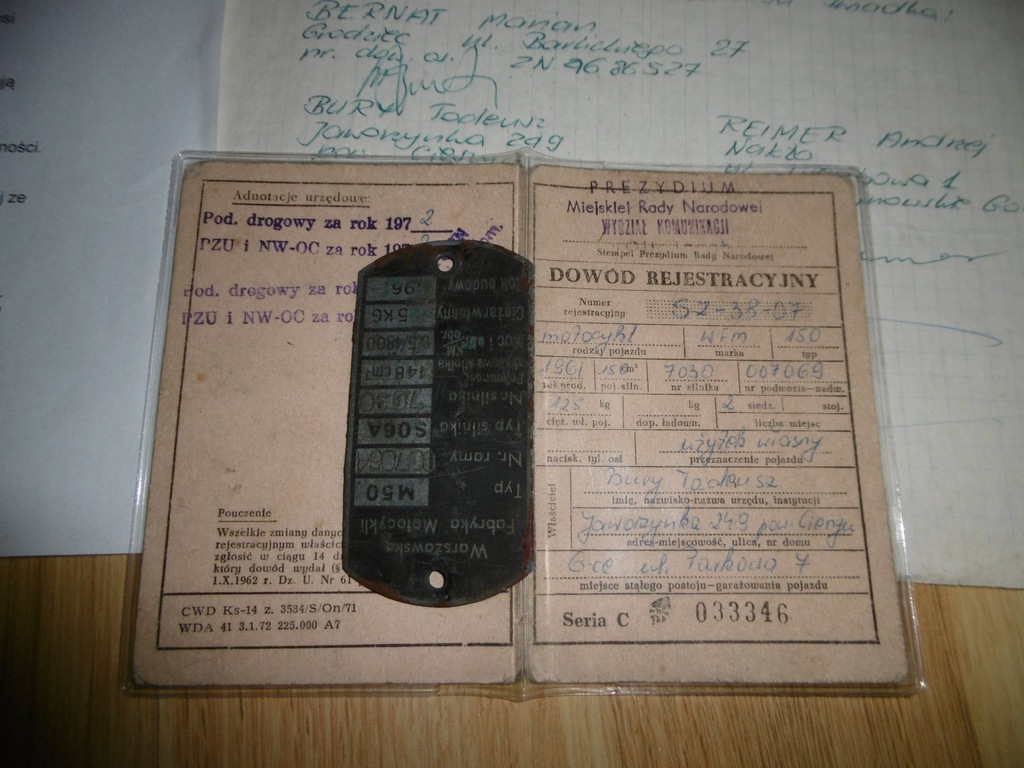 ności.
j ze
BERNAT Marian
Grodziec ul. Barlickiego 27
nr. dow. os. ZN 9686527
BURY Tadeusz
Jaworzynka 249
REIMER Andrzej
Nakło
Adnotacje urzędowe:
Pod. drogowy za rok 1972
PZU i NW-OC za rok 197
Pod. drogowy za rok
PZU i NW-OC za rok
Pouczenie
Wszelkie zmiany danyc
rejestracyjnym właścic
zgłosić w ciągu 14 d
który dowód wydał (§
1.X.1962 r. Dz. U. Nr 61
CWD Ks-14 z. 3534/S/On/71
WDA 41 3.1.72 225.000 A7
Warszawska
Fabryka Motocykli
Typ M50
Nr. ramy
Typ silnika S06A
Nr silnika
Pojemność skokowa silnika 148 cm³
Ciężar własny
Rok budowy
PREZYDIUM
Miejskiej Rady Narodowej
WYDZIAŁ KOMUNIKACJI
Stempel Prezydium Rady Narodowej
DOWÓD REJESTRACYJNY
Numer
rejestracyjny SZ-38-07
motocykl WFM 150
rodzaj pojazdu marka typ
1961 150 cm³ 7030 007069
rok prod. poj. siln. nr silnika nr podwozia-nadw.
125 kg kg 2 siedz. stoj.
cięż. wł. poj. dop. ładown. liczba miejsc
użytek własny
nacisk. tyl. osi przeznaczenie pojazdu
Właściciel
Bury Tadeusz
imię, nazwisko-nazwa urzędu, instytucji
Jaworzynka 249 pow. Cieszyn
adres-miejscowość, ulica, nr domu
ul. Parkowa 7
miejsce stałego postoju-garażowania pojazdu
Seria C 033346